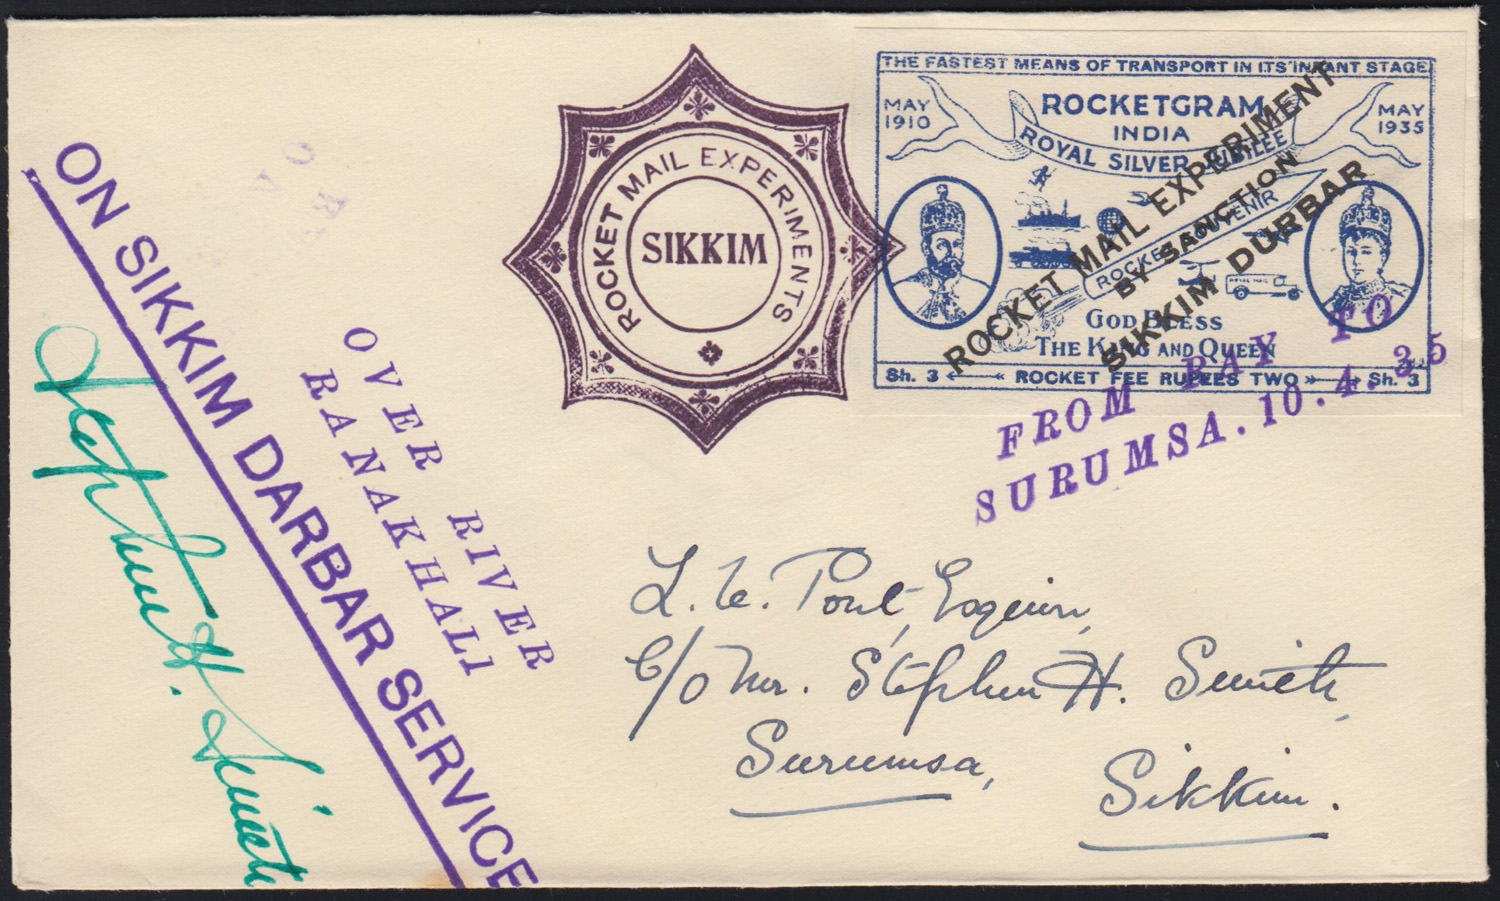 ON SIKKIM DARBAR SERVICE
Stephen H. Smith
OVER RIVER
RANAKHALI
ROCKET MAIL EXPERIMENTS
SIKKIM
THE FASTEST MEANS OF TRANSPORT IN ITS INFANT STAGE
MAY
1910
ROCKETGRAM
INDIA
MAY
1935
ROYAL SILVER JUBILEE
ROCKET SOUVENIR
ROCKET MAIL EXPERIMENT
BY SANCTION
SIKKIM DURBAR
GOD BLESS
THE KING AND QUEEN
Sh. 3 ROCKET FEE RUPEES TWO Sh. 3
FROM RAY TO
SURUMSA. 10. 4. 35
Esquire,
C/o Mr. Stephen H. Smith,
Surumsa,
Sikkim.